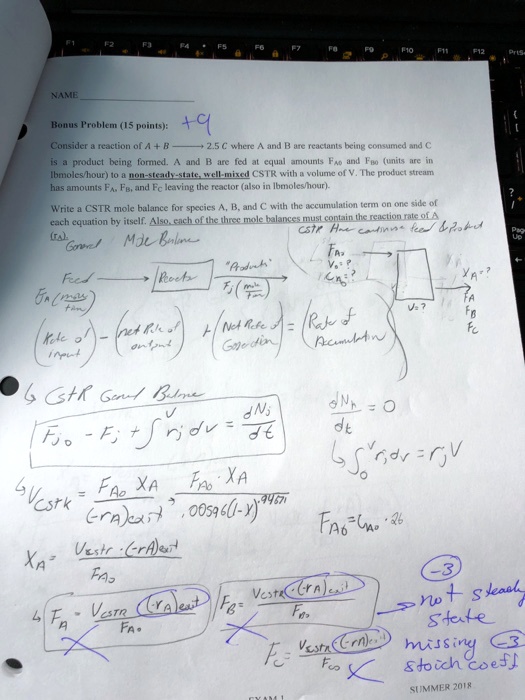 F1 F2 F3 F4 F5 F6 F7 F8 F9 F10 F11 F12 PrtS
NAME
Bonus Problem (15 points): +9
Consider a reaction of A + B ⟶ 2.5 C where A and B are reactants being consumed and C
is a product being formed. A and B are fed at equal amounts F_A0 and F_B0 (units are in
lbmoles/hour) to a non-steady-state, well-mixed CSTR with a volume of V. The product stream
has amounts F_A, F_B, and F_C leaving the reactor (also in lbmoles/hour).
Write a CSTR mole balance for species A, B, and C with the accumulation term on one side of
each equation by itself. Also, each of the three mole balances must contain the reaction rate of A
(r_A).
General Mole Balance
CSTR Has continuous feed & Product
F_A0
V_0 = ?
C_A0 = ?
X_A = ?
V = ?
F_A
F_B
F_C
Feed → Reactor "Products" →
(Rate of input) - (net Rate of output) + (Net Rate of Generation) = (Rate of Accumulation)
↳ CSTR General Balance
F_j0 - F_j + ∫^V r_j dv = dN_j/dt
= 0
↳ ∫_0^V r_j dv = r_j V
↳ V_CSTR = F_A0 X_A / (-r_A)exit , F_A0 · X_A / .00596(1-X)
F_A0 = C_A0 · 26
X_A = V_CSTR · (-r_A)exit / F_A0
↳ F_A = V_CSTR (-r_A)exit / F_A0
F_B = V_CSTR (-r_A)exit / F_B0
F_C = V_CSTR (-r_A)exit / F_C0
-3
not steady
state
missing -3
stoich coeff
SUMMER 2018
EXAM 1